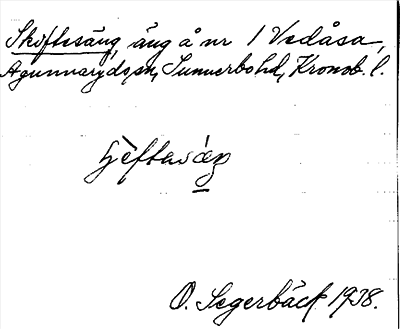 Skoftesäng, äng å nr 1 Vedåsa,
Agunnaryds sn, Sunnerbo hd, Kronob. l.
O. Segerbäck 1938.